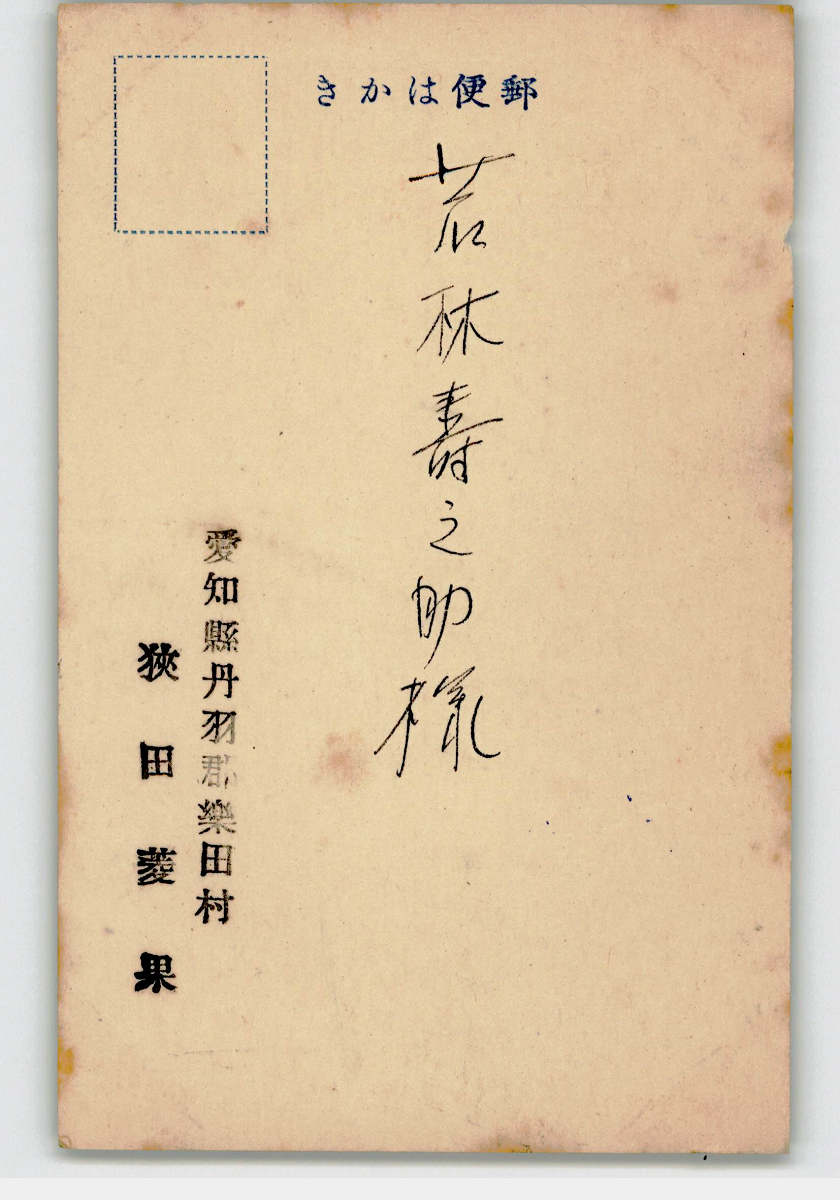 郵便はかき
若林寿之助様
愛知縣丹羽郡樂田村
狹田菱果